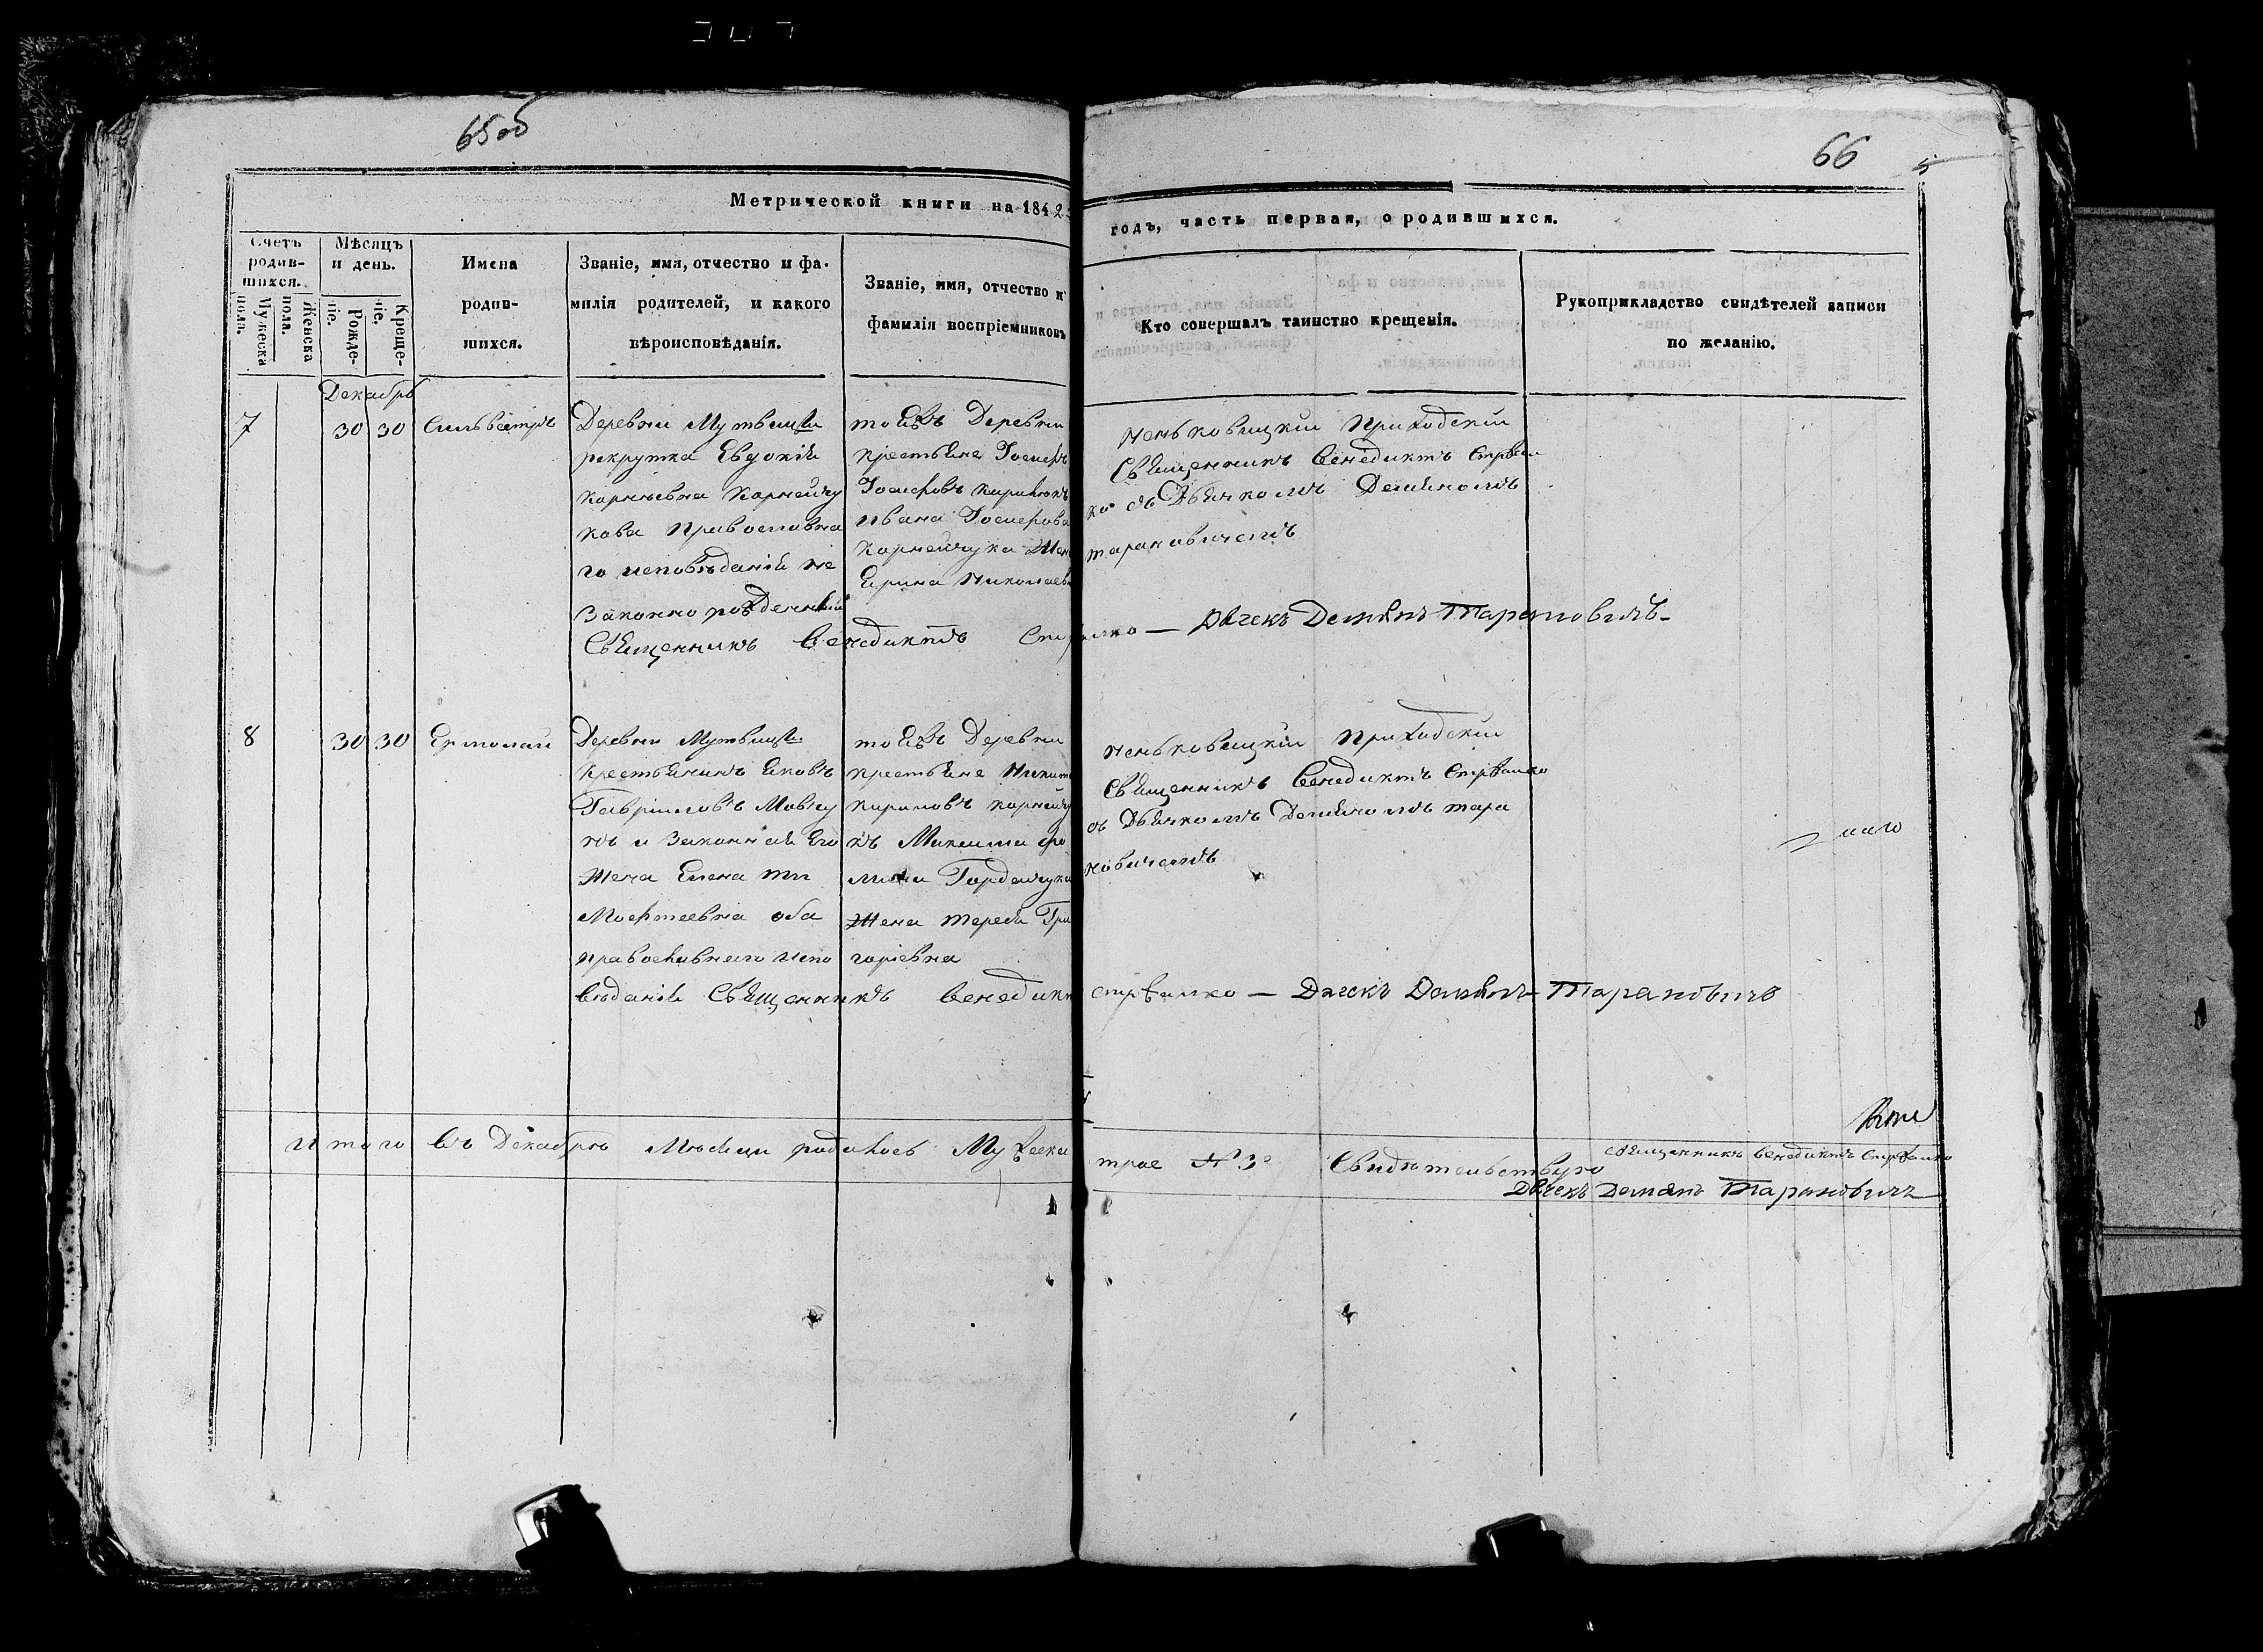 65об
66
Метрической книги на 1842
годъ, часть первая, о родившихся.
Счетъ родив-шихся.
Мужеска пола.
Женска пола.
Мѣсяцъ и день.
Рожде-ніе.
Креще-ніе.
Имена
родив-
шихся.
Званіе, имя, отчество и фа-
милія родителей, и какого
вѣроисповѣданія.
Званіе, имя, отчество и
фамилія воспріемниковъ
Кто совершалъ таинство крещенія.
Рукоприкладство свидѣтелей записи
по желанію.
Декабрь
7
30 30
Сильвестръ
Деревни Мутвицы
рекрутка Евдокія
Корнѣевна Корнейчу
кова Православна
го исповѣданія не
законно рожденный
тоѣжъ Деревни
крестьяне Іосифъ
Іосифовъ Кирилюкъ
Ивана Іосифова
Корнейчука Жен
Ерина Николаевн
Неньковицкій Приходскій
Священникъ Венедиктъ Стрѣли
ко съ Дьячкомъ Деміяномъ
Тарановичемъ
Священникъ Венедиктъ Стрѣлко — Дячекъ Демянъ Тарановичъ
8
30 30
Ермолай
Деревни Мутвицы
Крестьянинъ Яковъ
Гавріиловъ Мовчу
къ и Законная Его
Жена Елена Ти
Мофтеевна оба
православнаго испо
вѣданія Священникъ Венедикт
тоѣжъ Деревни
крестьяне Никит
Кириловъ Корнейчу
къ Максима Фо
мина Гордейчука
Жена Тереся Гри
горіевна
Неньковицкій Приходскій
Священникъ Венедиктъ Стрѣлко
съ Дьячкомъ Деміяномъ Тара
новичемъ
Стрѣлко — Дячекъ Демянъ Тарановичъ
Итого въ Декабрѣ Мѣсяци родилось Мужеска
трое № 3
Свидѣтельствую
Священникъ Венедиктъ Стрѣлко
Дячекъ Демянъ Тарановичъ